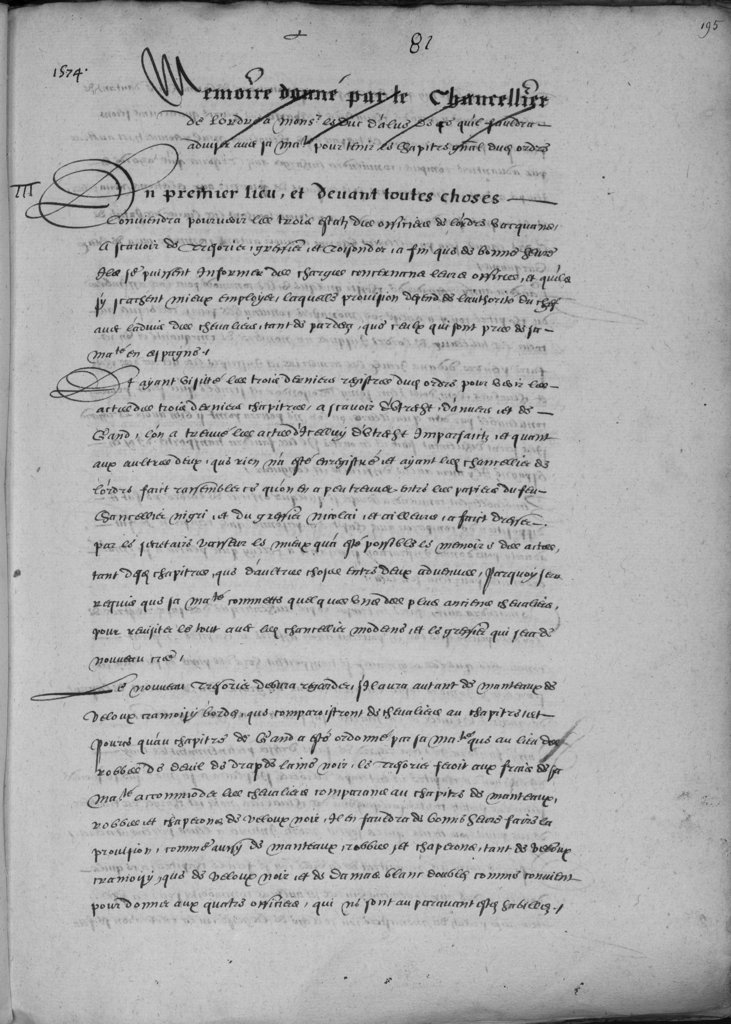 81
195
1574.
Memoire donné par le Chancellier
de l'ordre a Monsr le duc d'alve de ce qu'il fauldra
adviser avec sa Maté pour tenir le chapitre gnal dud ordre
III
En premier lieu, et devant toutes choses
Conviendra pourveoir les trois estatz des officiers de l'ordre vacquans,
a scavoir de Tresorier, greffier, et Toisond'or, a fin que de bonne heure
Ilz se puissent Informer des charges concernans leurs offices, et qu'ilz
s'y scachent mieux employer, laquelle provision depend de l'authorité du chef
avec l'advis des chevaliers, tant de pardeca, que ceulx qui sont prez de sa
maté en espagne.
Et ayant visité les trois derniers registres dud ordre pour veoir les
actes des trois derniers chapitres, a scavoir d'Utrecht, d'anvers, et de
Gand, l'on a treuvé les actes d'Icelluy d'Utrecht Imparfaictz, et quant
aux aultres deux, que rien n'a esté enregistré, et ayant led chancellier de
l'ordre faict rassembler ce qu'on en a peu treuver entre les papiers du feu
Chancellier nigri, et du greffier Nicolai, et ailleurs, a faict dresser
par le secretaire vasseur le mieux qu'a esté possible le memoire des actes,
tant desd chapitres, que d'aultres choses entre deux advenues, Parquoy sera
requis que sa Maté commette quelques uns des plus anciens chevaliers,
pour revisiter le tout avec led chancellier moderne, et le greffier qui sera de
nouveau créé.
Le nouveau Tresorier debvra regarder, s'Il aura autant de manteaux de
veloux cramoisy bordez, que comparoistront de chevaliers au chapitre, et
pource qu'au chapitre de Gand a esté ordonné par sa Maté que au lieu des
robbes de deuil de drap de laine noir, le Tresorier feroit aux frais de sa
Maté accommoder les chevaliers comparans au chapitre de manteaux,
robbes, et chaperons de veloux noir, Il en fauldra de bonne heure faire la
provision, comme aussy de manteaux, robbes, et chaperons, tant de veloux
cramoisy, que de veloux noir, et de damas blanc doublez comme convient
pour donner aux quatre officiers, qui ne sont au paravant esté habillez.